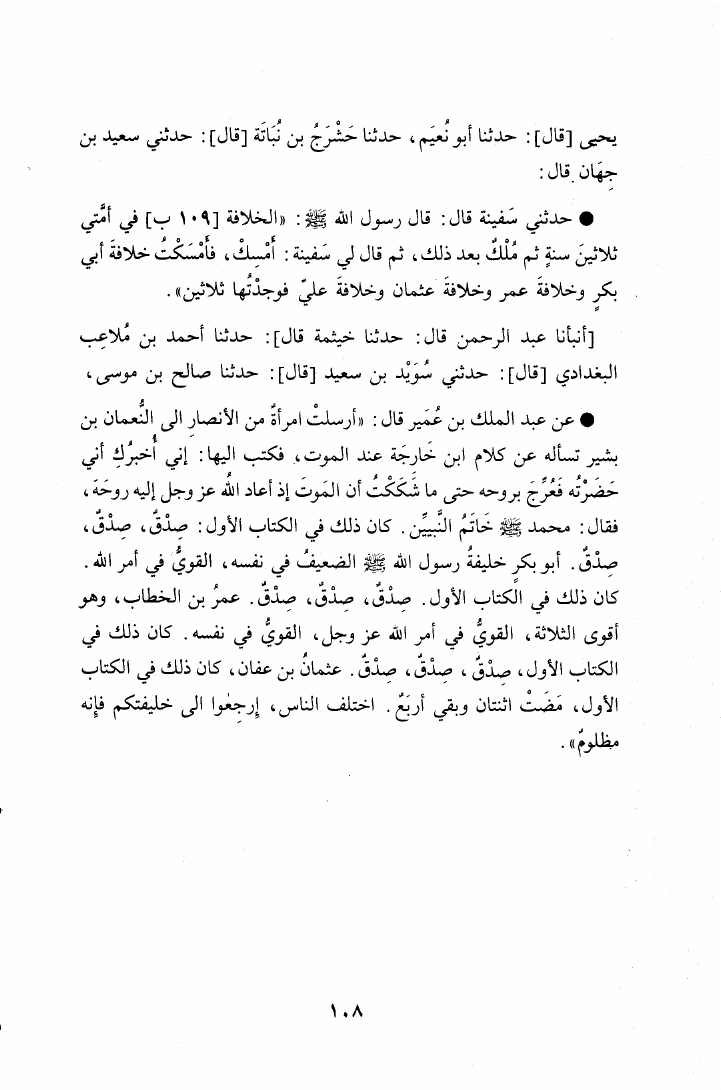 يحيى [قال]: حدثنا أبو نُعيَم، حدثنا حَشْرَجُ بن نُبَاتَة [قال]: حدثني سعيد بن
جِهَان قال:
● حدثني سَفينة قال: قال رسول الله ﷺ: «الخلافة [١٠٩ ب] في أمَّتي
ثلاثينَ سنةٍ ثم مُلْكٌ بعد ذلك، ثم قال لي سَفينة: أَمْسِكْ، فأَمْسَكْتُ خلافةَ أبي
بكرٍ وخلافةَ عمر وخلافةَ عثمان وخلافةَ عليّ فوجدْتُها ثلاثين».
[أنبأنا عبد الرحمن قال: حدثنا خيثمة قال]: حدثنا أحمد بن مُلاعِب
البغدادي [قال]: حدثني سُوَيْد بن سعيد [قال]: حدثنا صالح بن موسى،
● عن عبد الملك بن عُمَير قال: «أرسلتْ امرأةٌ من الأنصارِ الى النُّعمان بن
بشير تسأله عن كلام ابن خَارجَة عند الموت، فكتب اليها: إني أُخبرُكِ أني
حَضَرْتُه فَعُرِّجَ بروحه حتى ما شَكَكْتُ أن الموتَ إذ أعاد اللهُ عز وجل إليه روحَهَ،
فقال: محمد ﷺ خَاتَمُ النَّبيِّين. كان ذلك في الكتاب الأول: صِدْقٌ، صِدْقٌ،
صِدْقٌ. أبو بكرٍ خليفةُ رسول الله ﷺ الضعيفُ في نفسه، القويُّ في أمر الله.
كان ذلك في الكتاب الأول. صِدْقٌ، صِدْقٌ، صِدْقٌ. عمرُ بن الخطاب، وهو
أقوى الثلاثة، القويُّ في أمر الله عز وجل، القويُّ في نفسه. كان ذلك في
الكتاب الأول، صِدْقٌ، صِدْقٌ، صِدْقٌ. عثمانُ بن عفان، كان ذلك في الكتاب
الأول، مَضَتْ اثنتان وبقي أربَعٌ. اختلف الناس، إرجِعُوا الى خليفتكم فإنه
مظلومٌ».
١٠٨